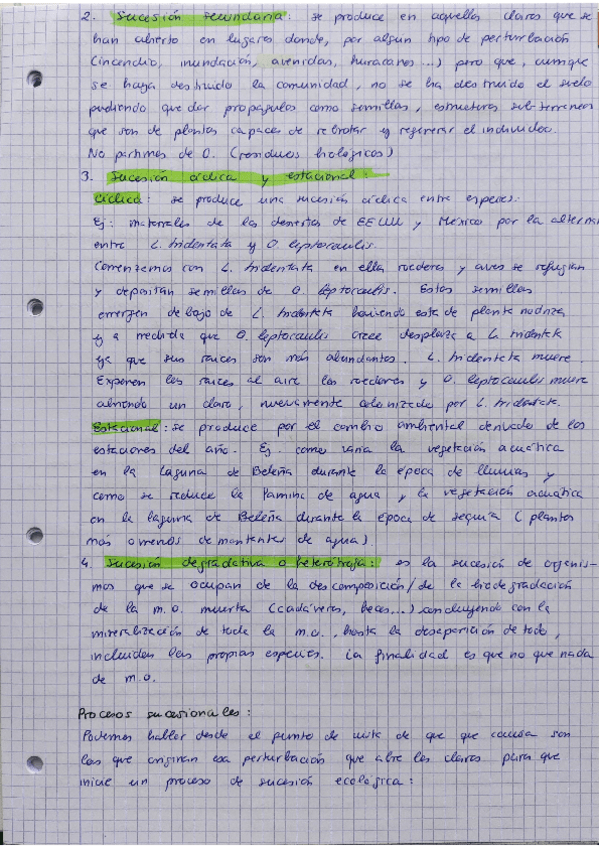 2. Sucesión secundaria: se produce en aquellos claros que se
han abierto en lugares donde, por algún tipo de perturbación
(incendio, inundación, avenidas, huracanes...) pero que, aunque
se haya destruido la comunidad, no se ha destruido el suelo
pudiendo quedar propágulos como semillas, estructuras subterráneas
que son de plantas capaces de rebrotar y regenerar el individuo.
No partimos de 0. (residuos biológicos)
3. Sucesión cíclica y estacional:
Cíclica: se produce una sucesión cíclica entre especies.
Ej: matorrales de los desiertos de EEUU y México por la altern
entre L. tridentata y O. leptocaulis.
Comenzamos con L. tridentata en ella roedores y aves se refugian
y depositan semillas de O. leptocaulis. Estas semillas
emergen debajo de L. tridentata haciendo esta de planta nodriza
y a medida que O. leptocaulis crece desplaza a L. tridentata
ya que sus raíces son más abundantes. L. tridentata muere.
Exponen las raíces al aire los roedores y O. leptocaulis muere
abriendo un claro, nuevamente colonizado por L. tridentata.
Estacional: se produce por el cambio ambiental derivado de las
estaciones del año. Ej. como varía la vegetación acuática
en la laguna de Beleña durante la época de lluvias y
como se reduce la lámina de agua y la vegetación acuática
en la laguna de Beleña durante la época de sequía (plantas
más o menos demandantes de agua)
4. Sucesión degradativa o heterótrofa: es la sucesión de organis-
mos que se ocupan de la descomposición/de la biodegradación
de la m.o. muerta (cadáveres, heces...) concluyendo con la
mineralización de toda la m.o., hasta la desaparición de todo,
incluidas las propias especies. La finalidad es que no quede nada
de m.o.
Procesos sucesionales:
Podemos hablar desde el punto de vista de que que causa son
las que originan esa perturbación que abre los claros para que
inicie un proceso de sucesión ecológica: